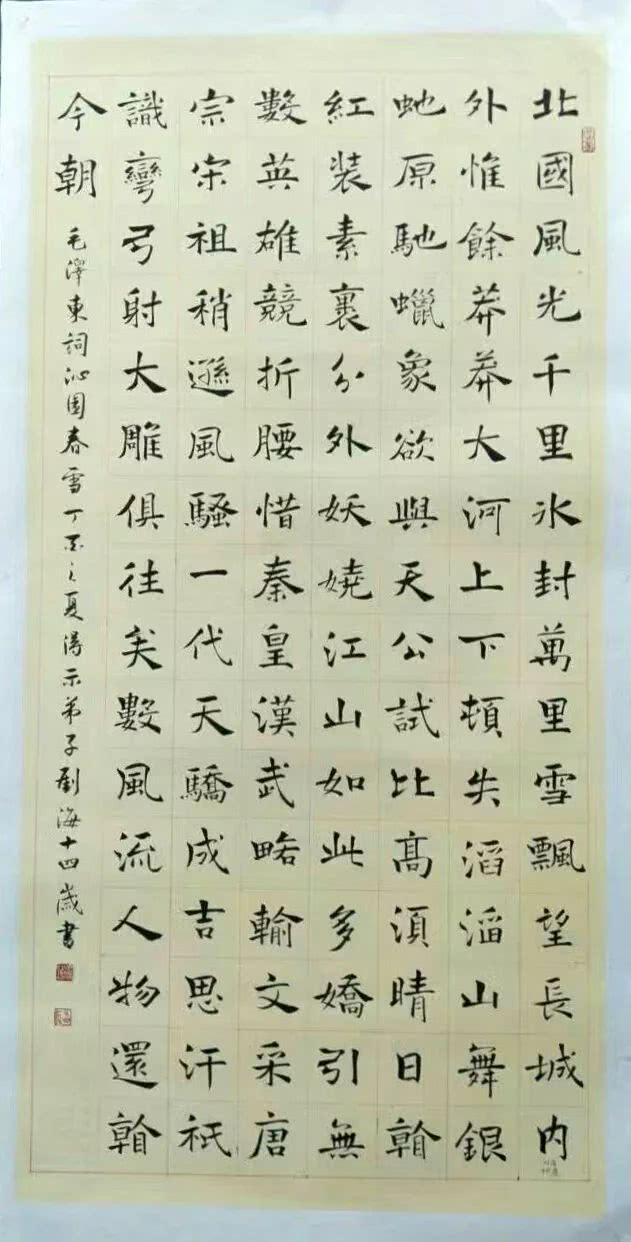 北國風光千里冰封萬里雪飄望長城内
外惟餘莽莽大河上下頓失滔滔山舞銀
虵原馳蠟象欲與天公試比髙須晴日看
紅装素裹分外妖嬈江山如此多嬌引無
數英雄競折腰惜秦皇漢武略輸文采唐
宗宋祖稍遜風騷一代天驕成吉思汗祇
識彎弓射大雕俱往矣數風流人物還看
今朝
毛澤東詞沁園春雪丁之夏示弟子劉海十四歲書